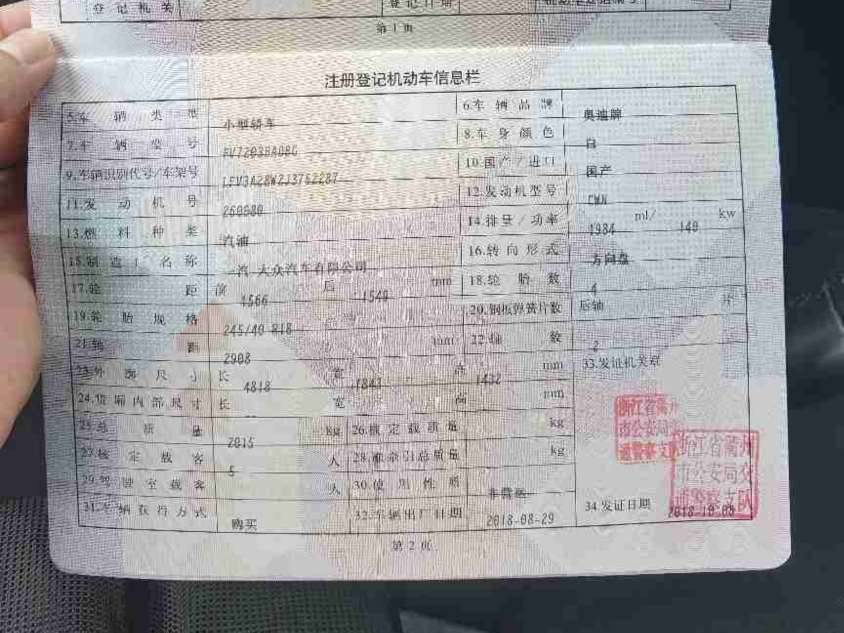 登记机关 登记日期
第1页
注册登记机动车信息栏
5.车辆类型 小型轿车 6.车辆品牌 奥迪牌
7.车辆型号 8.车身颜色 白
9.车辆识别代号/车架号 10.国产/进口 国产
11.发动机号 260680 12.发动机型号 CWN
13.燃料种类 汽油 14.排量/功率 1984 ml/ 140 kw
15.制造厂名称 一汽-大众汽车有限公司 16.转向形式 方向盘
17.轮距 前 1566 后 1549 mm 18.轮胎数 4
19.轮胎规格 245/40 R18 20.钢板弹簧片数 后轴 片
21.轴距 2908 mm 22.轴数 2
23.外廓尺寸 长 4818 宽 1843 高 1432 mm 33.发证机关章
24.货厢内部尺寸 长 宽 高 mm
25.总质量 2015 kg 26.核定载质量 kg
27.核定载客 5 人 28.准牵引总质量 kg
29.驾驶室载客 人 30.使用性质 非营运
31.车辆获得方式 购买 32.车辆出厂日期 2018-08-29 34.发证日期 2018-10-08
浙江省衢州
市公安局交
通警察支队
浙江省衢州
市公安局交
通警察支队
第2页